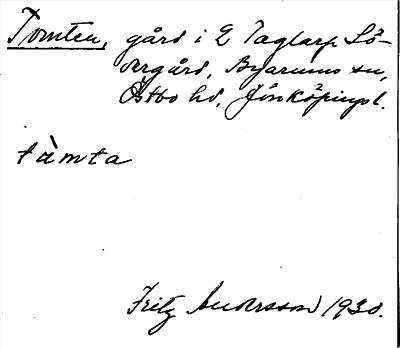 Tomten, gård i E Taglarp Sö-
dergård, Byarums sn,
Östbo hd, Jönköpings l.
tåmta
Fritz Andersson 1930.